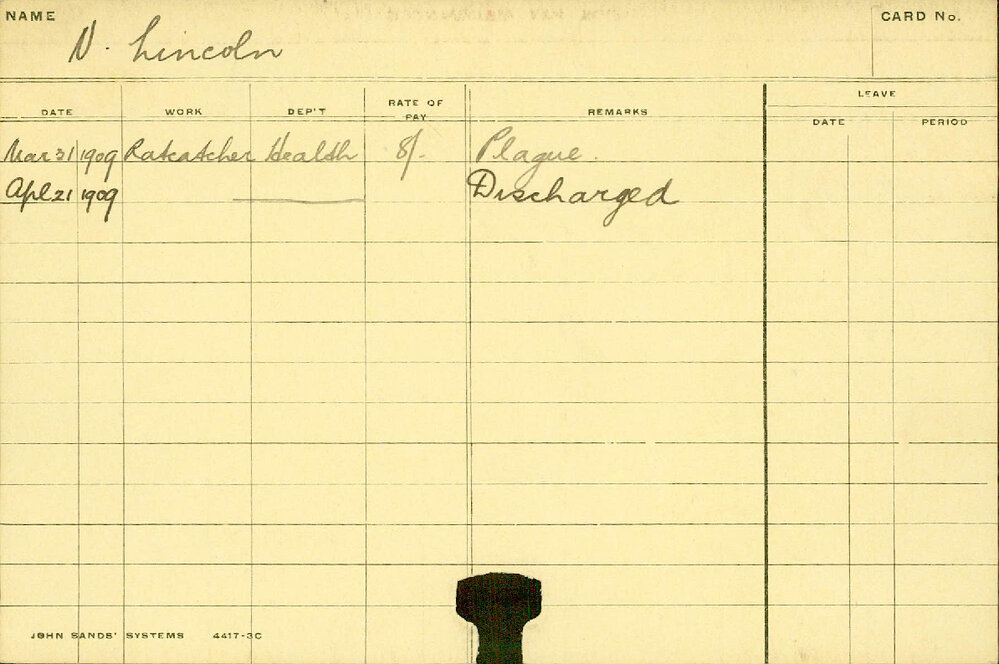 NAME
CARD No.
N. Lincoln
LEAVE
DATE WORK DEP'T RATE OF PAY REMARKS DATE PERIOD
Mar 31 1909 Ratcatcher Health 8/- Plague.
Apl 21 1909 Discharged
JOHN SANDS' SYSTEMS 4417-3C